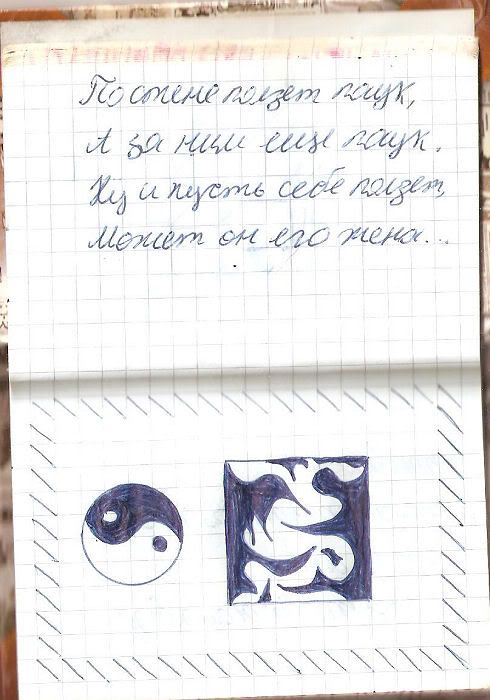 По стене ползет паук,
А за ним еще паук.
Ну и пусть себе ползет,
Может он его жена...